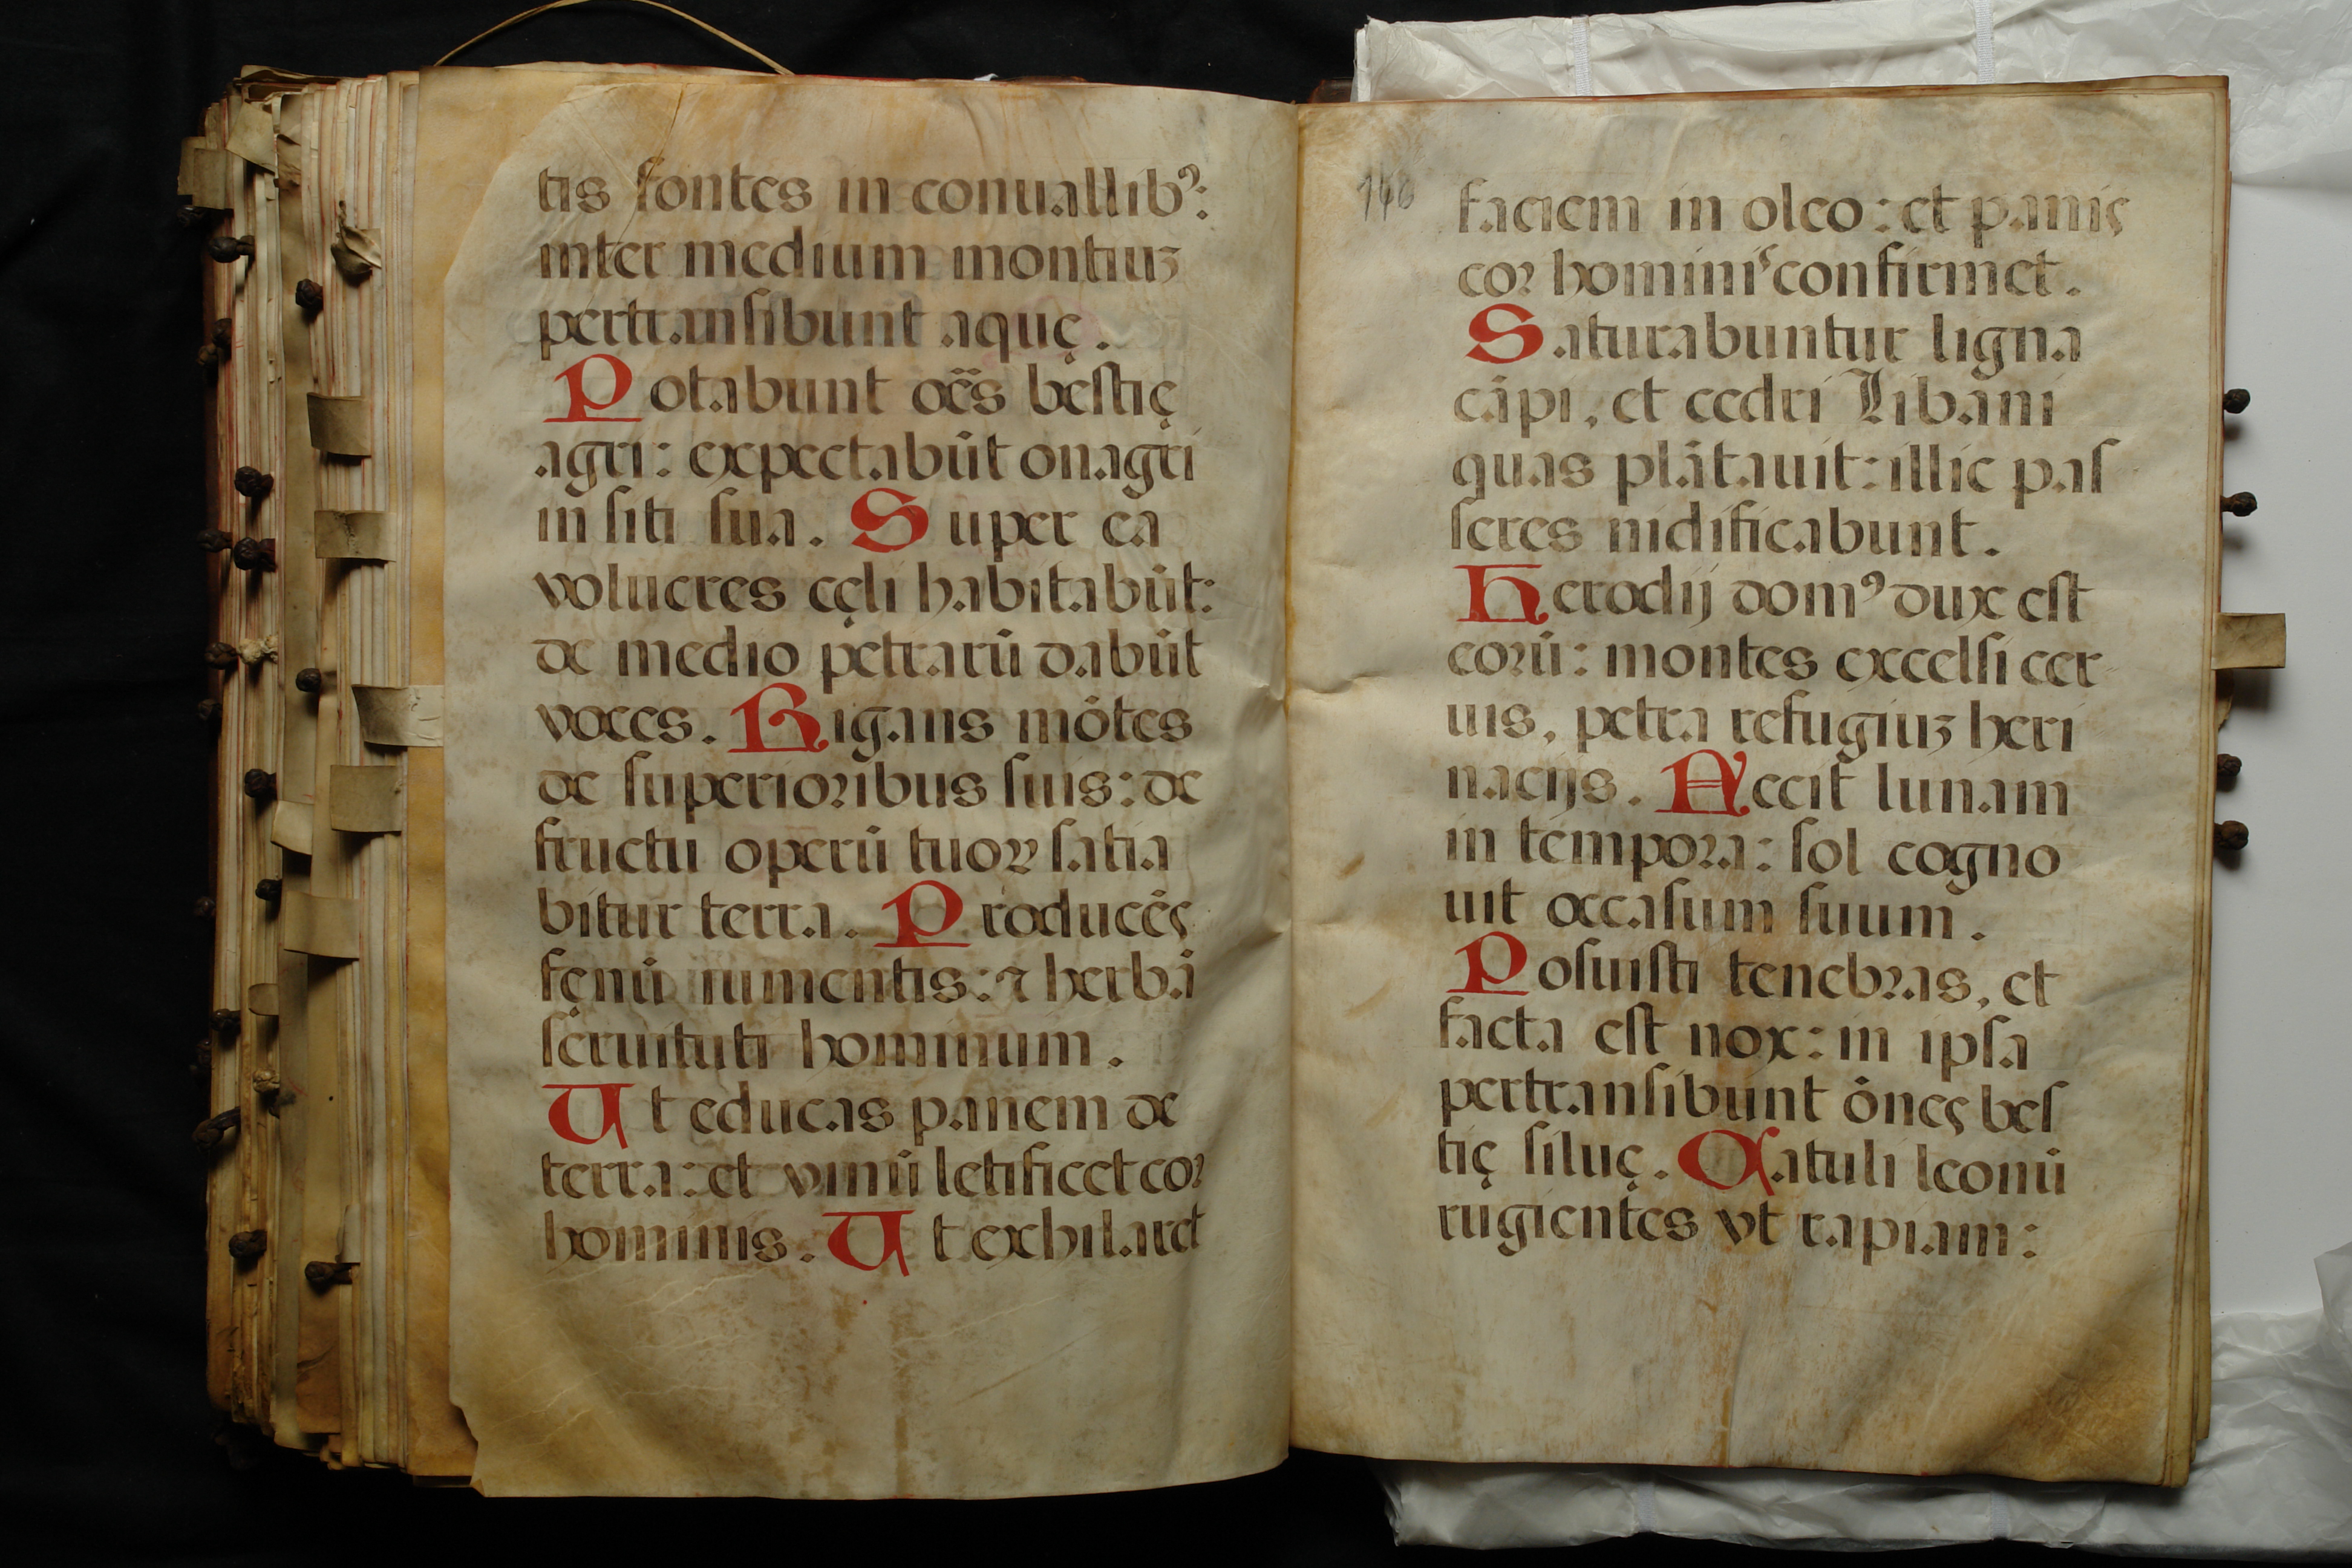 tis fontes in conuallibꝰ:
inter medium montiuꝫ
pertransibunt aquę.
Potabunt oēs bestię
agri: expectabūt onagri
in siti sua. Super ea
volucres cęli habitabūt:
de medio petrarū dabūt
voces. Rigans mōtes
de superioribus suis: de
fructu operū tuoꝝ satia
bitur terra. Producēs
fęnū iumentis: ⁊ herbā
seruituti hominum.
Ut educas panem de
terra: et vinū letificet cor
hominis. Ut exhilaret
148
faciem in oleo: et panis
cor hominis confirmet.
Saturabuntur ligna
cāpi, et cedri Libani
quas plātauit: illic pas
seres nidificabunt.
Herodij domꝰ dux est
eorū: montes excelsi cer
uis, petra refugiuꝫ heri
nacijs. Feccit lunam
in tempora: sol cogno
uit occasum suum.
Posuisti tenebras, et
facta est nox: in ipsa
pertransibunt ōnes bes
tię siluę. Catuli leonū
rugientes vt rapiam: